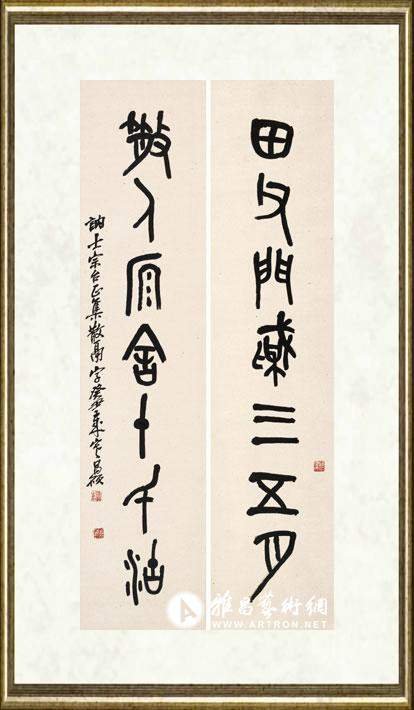 田父門三五月
散人原舍十千沽
訥士宗台正集散鬲字癸丑昌碩
雅昌藝術網
WWW.ARTRON.NET